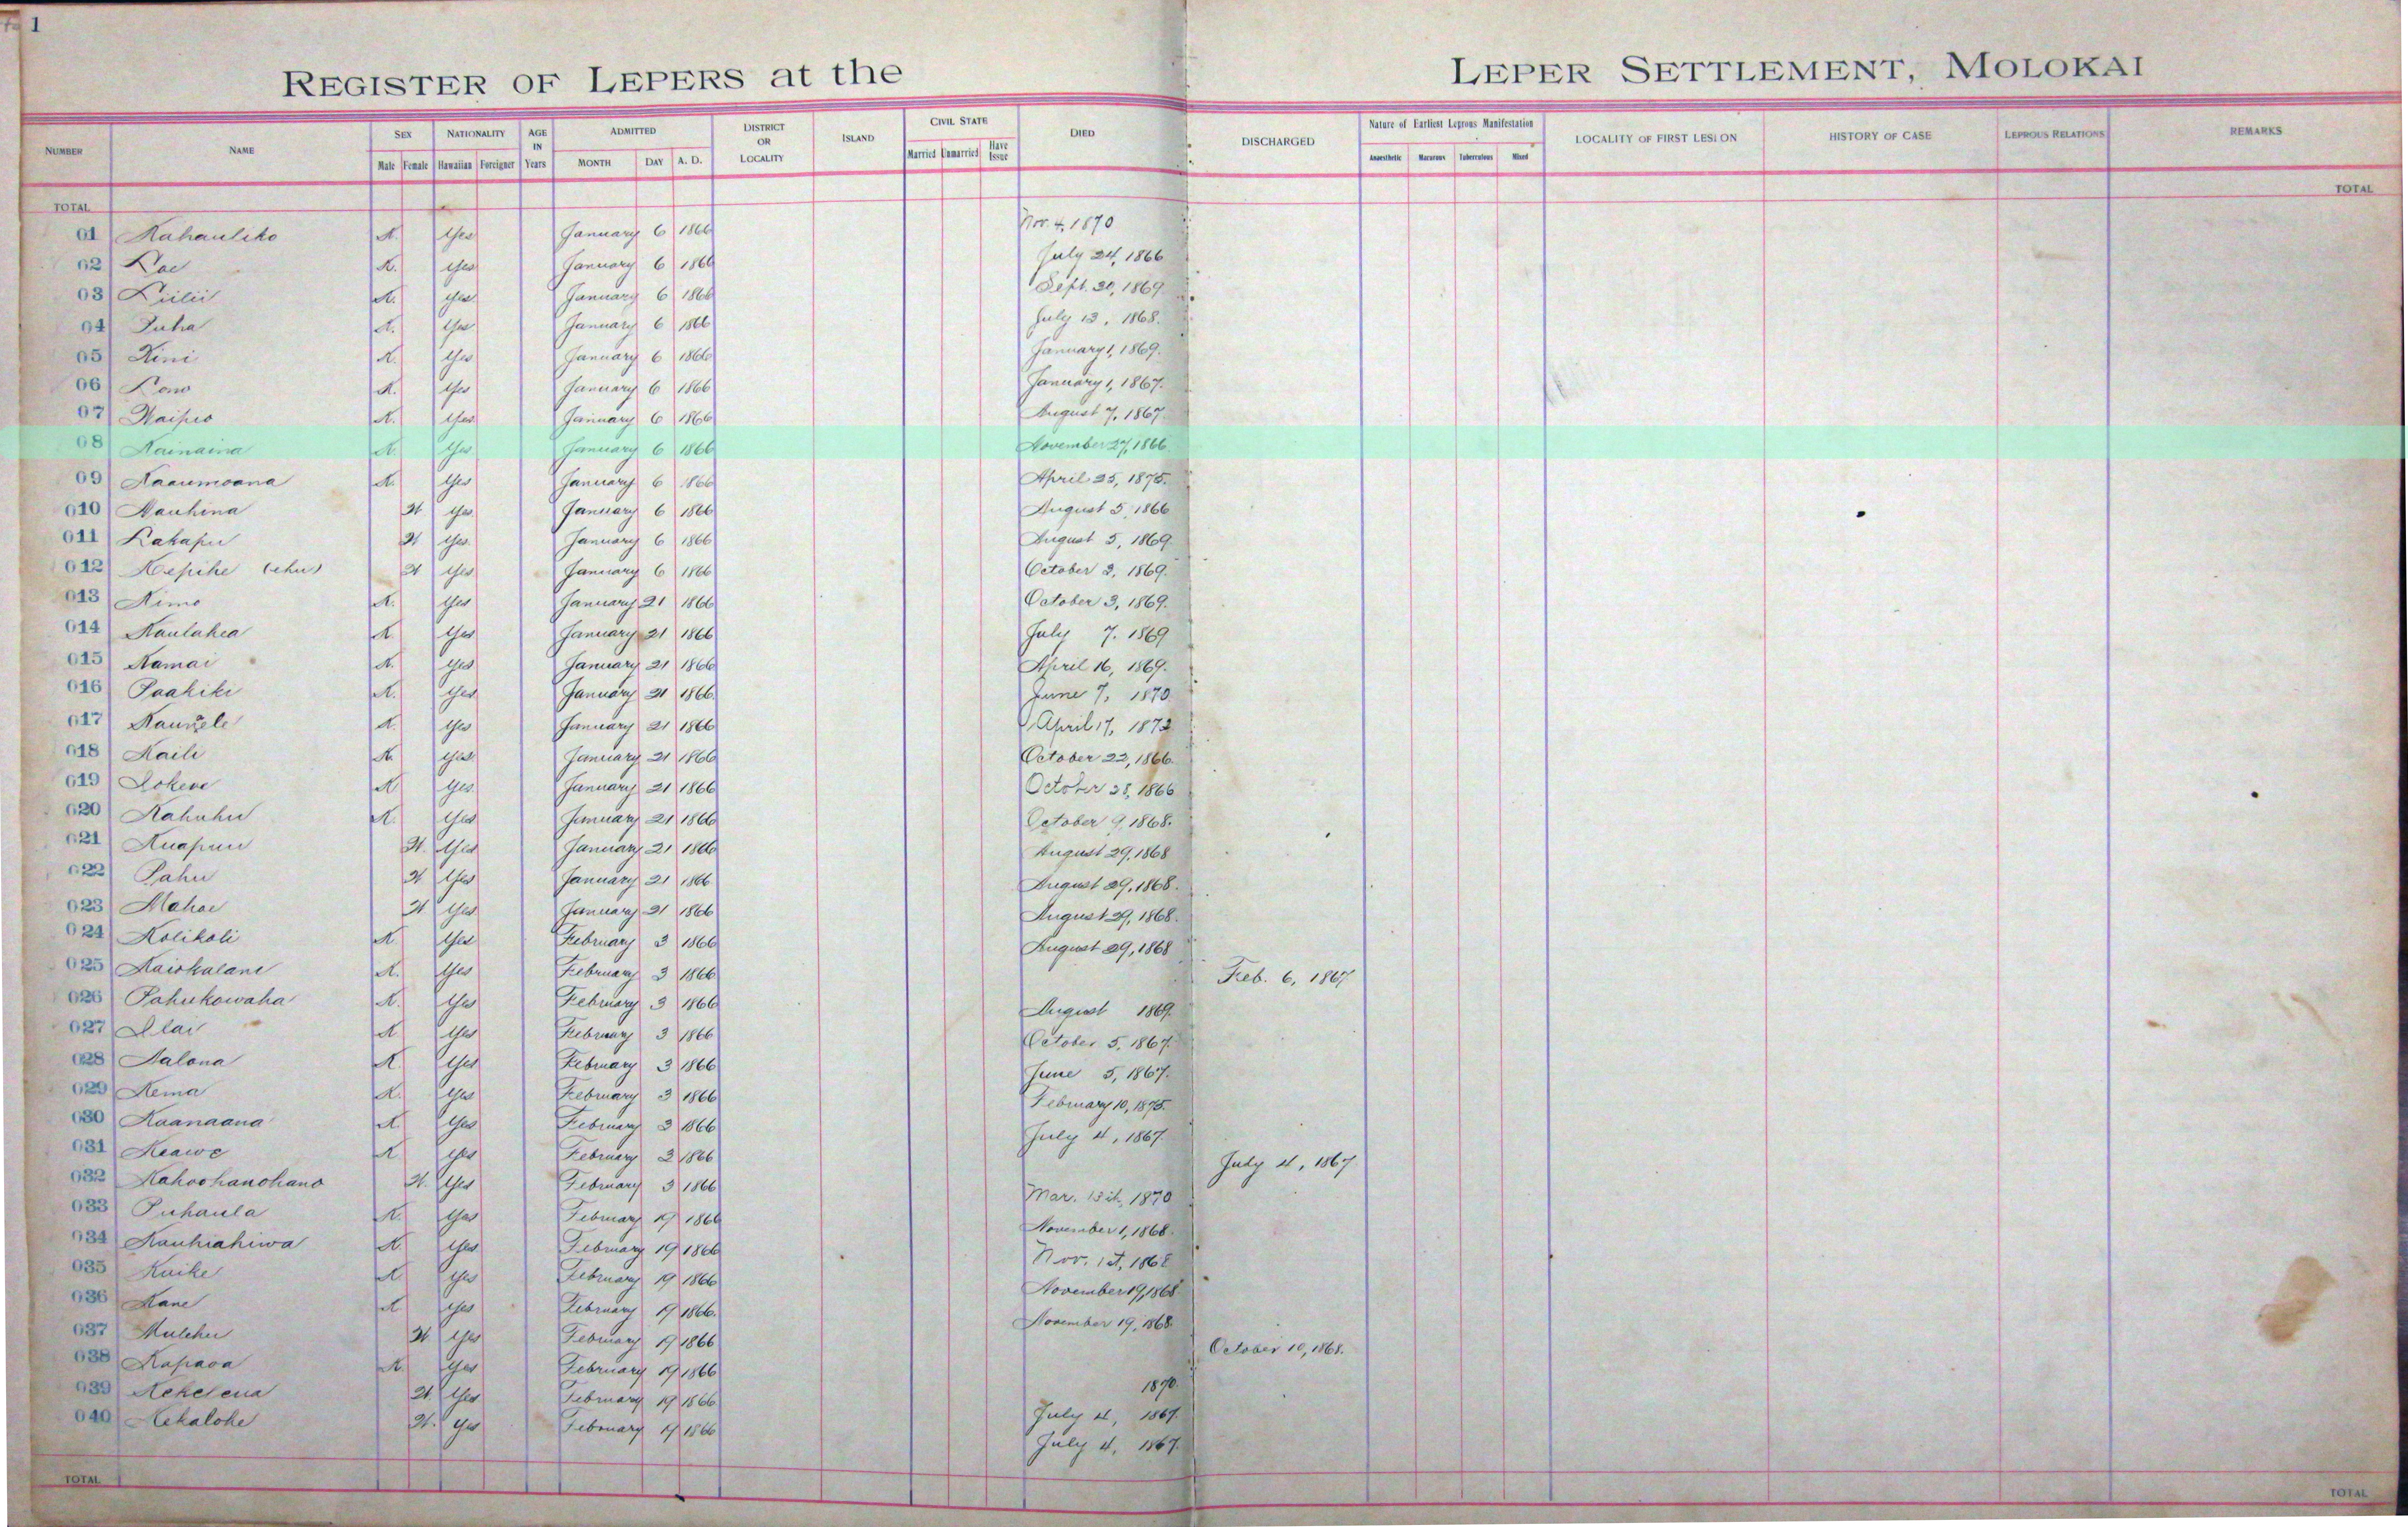 1
REGISTER OF LEPERS at the LEPER SETTLEMENT, MOLOKAI
NUMBER NAME SEX NATIONALITY AGE IN Years ADMITTED DISTRICT OR LOCALITY ISLAND CIVIL STATE DIED DISCHARGED Nature of Earliest Leprous Manifestation LOCALITY OF FIRST LESION HISTORY OF CASE LEPROUS RELATIONS REMARKS
Male Female Hawaiian Foreigner MONTH DAY A. D. Married Unmarried Have Issue Anaesthetic Macurous Tuberculous Mixed
TOTAL TOTAL
01 Kahauliko K. Yes January 6 1866 Nov. 4, 1870
02 Kae K. Yes January 6 1866 July 24, 1866
03 Liilii K. Yes January 6 1866 Sept. 20, 1869.
04 Puha K. Yes January 6 1866 July 13, 1868.
05 Kini K. Yes January 6 1866 January 1, 1869.
06 Lono K. Yes January 6 1866 January 1, 1867.
07 Waipio K. Yes January 6 1866 August 7, 1867.
08 Kainaina K. Yes January 6 1866 November 27, 1866.
09 Kaaumoana K. Yes January 6 1866 April 25, 1875.
010 Nauhina W Yes January 6 1866 August 5, 1866
011 Lakapu W Yes January 6 1866 August 5, 1869.
012 Kepihe (ehu) W Yes January 6 1866 October 2, 1869.
013 Kimo K. Yes January 21 1866 October 3, 1869.
014 Kaulahea K. Yes January 21 1866 July 7. 1869
015 Kamai K. Yes January 21 1866 April 16, 1869.
016 Paakiki K. Yes January 21 1866 June 7, 1870
017 Kauwele K. Yes January 21 1866 April 17, 1872
018 Kaili K. Yes January 21 1866 October 22, 1866.
019 Lokene K Yes January 21 1866 October 28, 1866
020 Kahuhu K. Yes January 21 1866 October 9, 1868.
021 Kuapuu W. Yes January 21 1866 August 29, 1868
022 Pahu W Yes January 21 1866 August 29, 1868.
023 Mahoe W Yes January 21 1866 August 29, 1868.
024 Kolikoli K Yes February 3 1866 August 29, 1868
025 Kaiokalani K. Yes February 3 1866 Feb. 6, 1867
026 Pahukowaha K. Yes February 3 1866 August 1869.
027 Ilai K Yes February 3 1866 October 5, 1867.
028 Kalona K. Yes February 3 1866 June 5, 1867.
029 Kema K. Yes February 3 1866 February 10, 1875.
030 Kaanaana K Yes February 3 1866 July 4, 1867.
031 Keawe K Yes February 3 1866 July 4, 1867
032 Kahoohanohano W. Yes February 3 1866 Mar. 15th, 1870
033 Puhaula K. Yes February 19 1866 November 1, 1868.
034 Kauhiahiwa K. Yes February 19 1866 Nov. 1st, 1868
035 Kaike K Yes February 19 1866 November 19, 1868
036 Kane K Yes February 19 1866. November 19, 1868.
037 Mulehu W Yes February 19 1866 October 10, 1868.
038 Kapaoa K. Yes February 19 1866
039 Kekelena W. Yes February 19 1866 1870.
July 4, 1867.
040 Kekalohe W. Yes February 19 1866 July 4, 1867.
TOTAL TOTAL